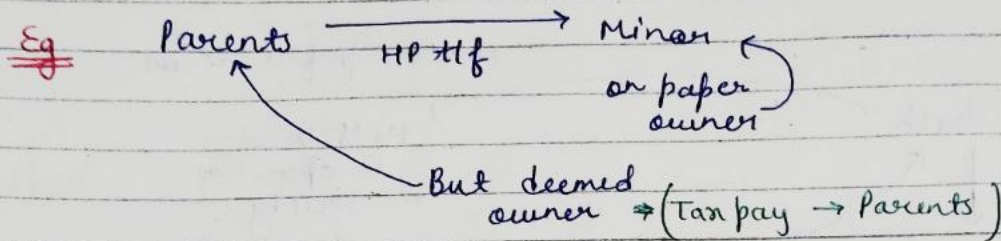 Eg Parents → Minor
HP t/f
on paper
owner
But deemed
owner ⇒ (Tax pay → Parents)